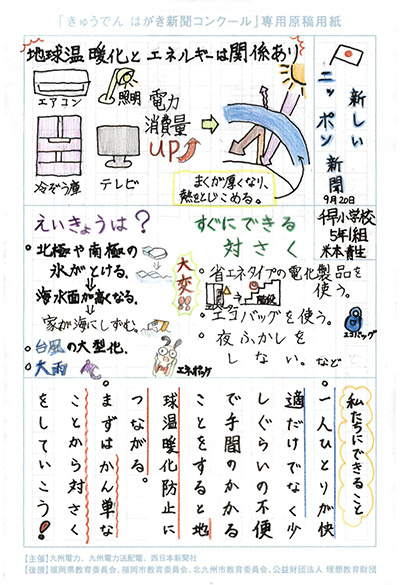 「きゅうでん はがき新聞コンクール」専用原稿用紙
地球温暖化とエネルギーは関係あり
新しい
ニッポン新聞
9月20日
千早小学校
5年1組
エアコン
照明
冷ぞう庫
テレビ
電力
消費量
UP
まくが厚くなり、
熱をとじこめる。
えいきょうは?
北極や南極の
氷がとける。
海水面が高くなる。
家が海にしずむ。
台風の大型化。
大雨
大変!!
すぐにできる
対さく
省エネタイプの電化製品を
使う。
階段
エコバッグを使う。
エコバッグ
夜ふかしを
しない。など
私たちにできること
一人ひとりが快
適だけでなく少
しぐらいの不便
で手間のかかる
ことをすると地
球温暖化防止に
つながる。
まずはかん単な
ことから対さく
をしていこう!
【主催】九州電力、九州電力送配電、西日本新聞社
【後援】福岡県教育委員会、福岡市教育委員会、北九州市教育委員会、公益財団法人 理想教育財団